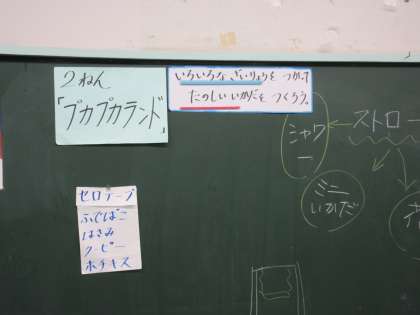 2ねん
「プカプカランド」
いろいろなざいりょうをつかって
たのしいいかだをつくろう。
セロテープ
ふでばこ
はさみ
クーピー
ホチキス
ストロー
シャワ
ー
ミニ
いかだ